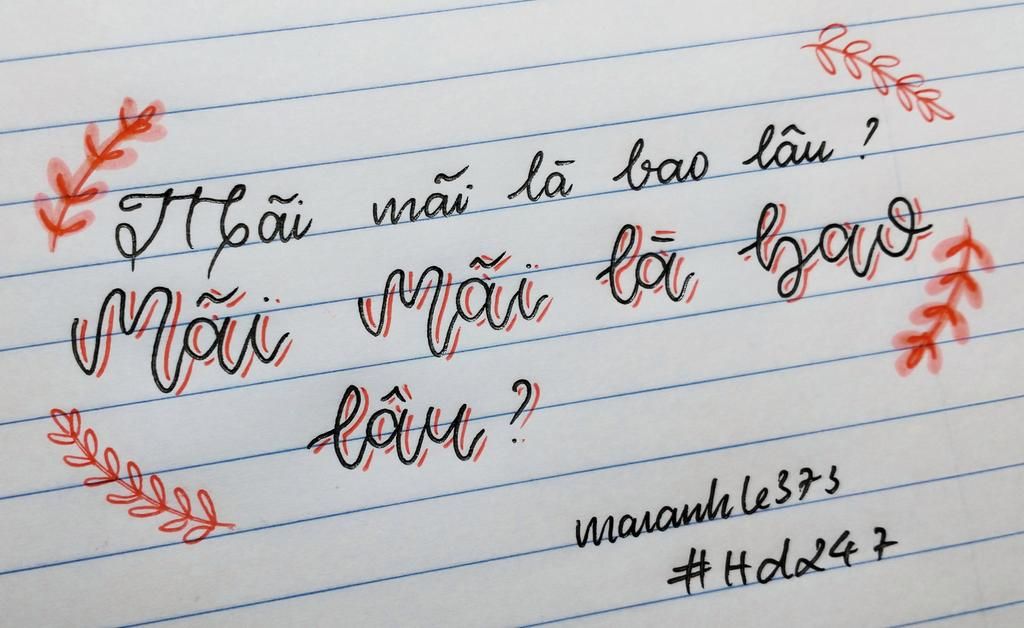 Mãi mãi là bao lâu?
Mãi mãi là bao
lâu?
maianhle373
#Hd247